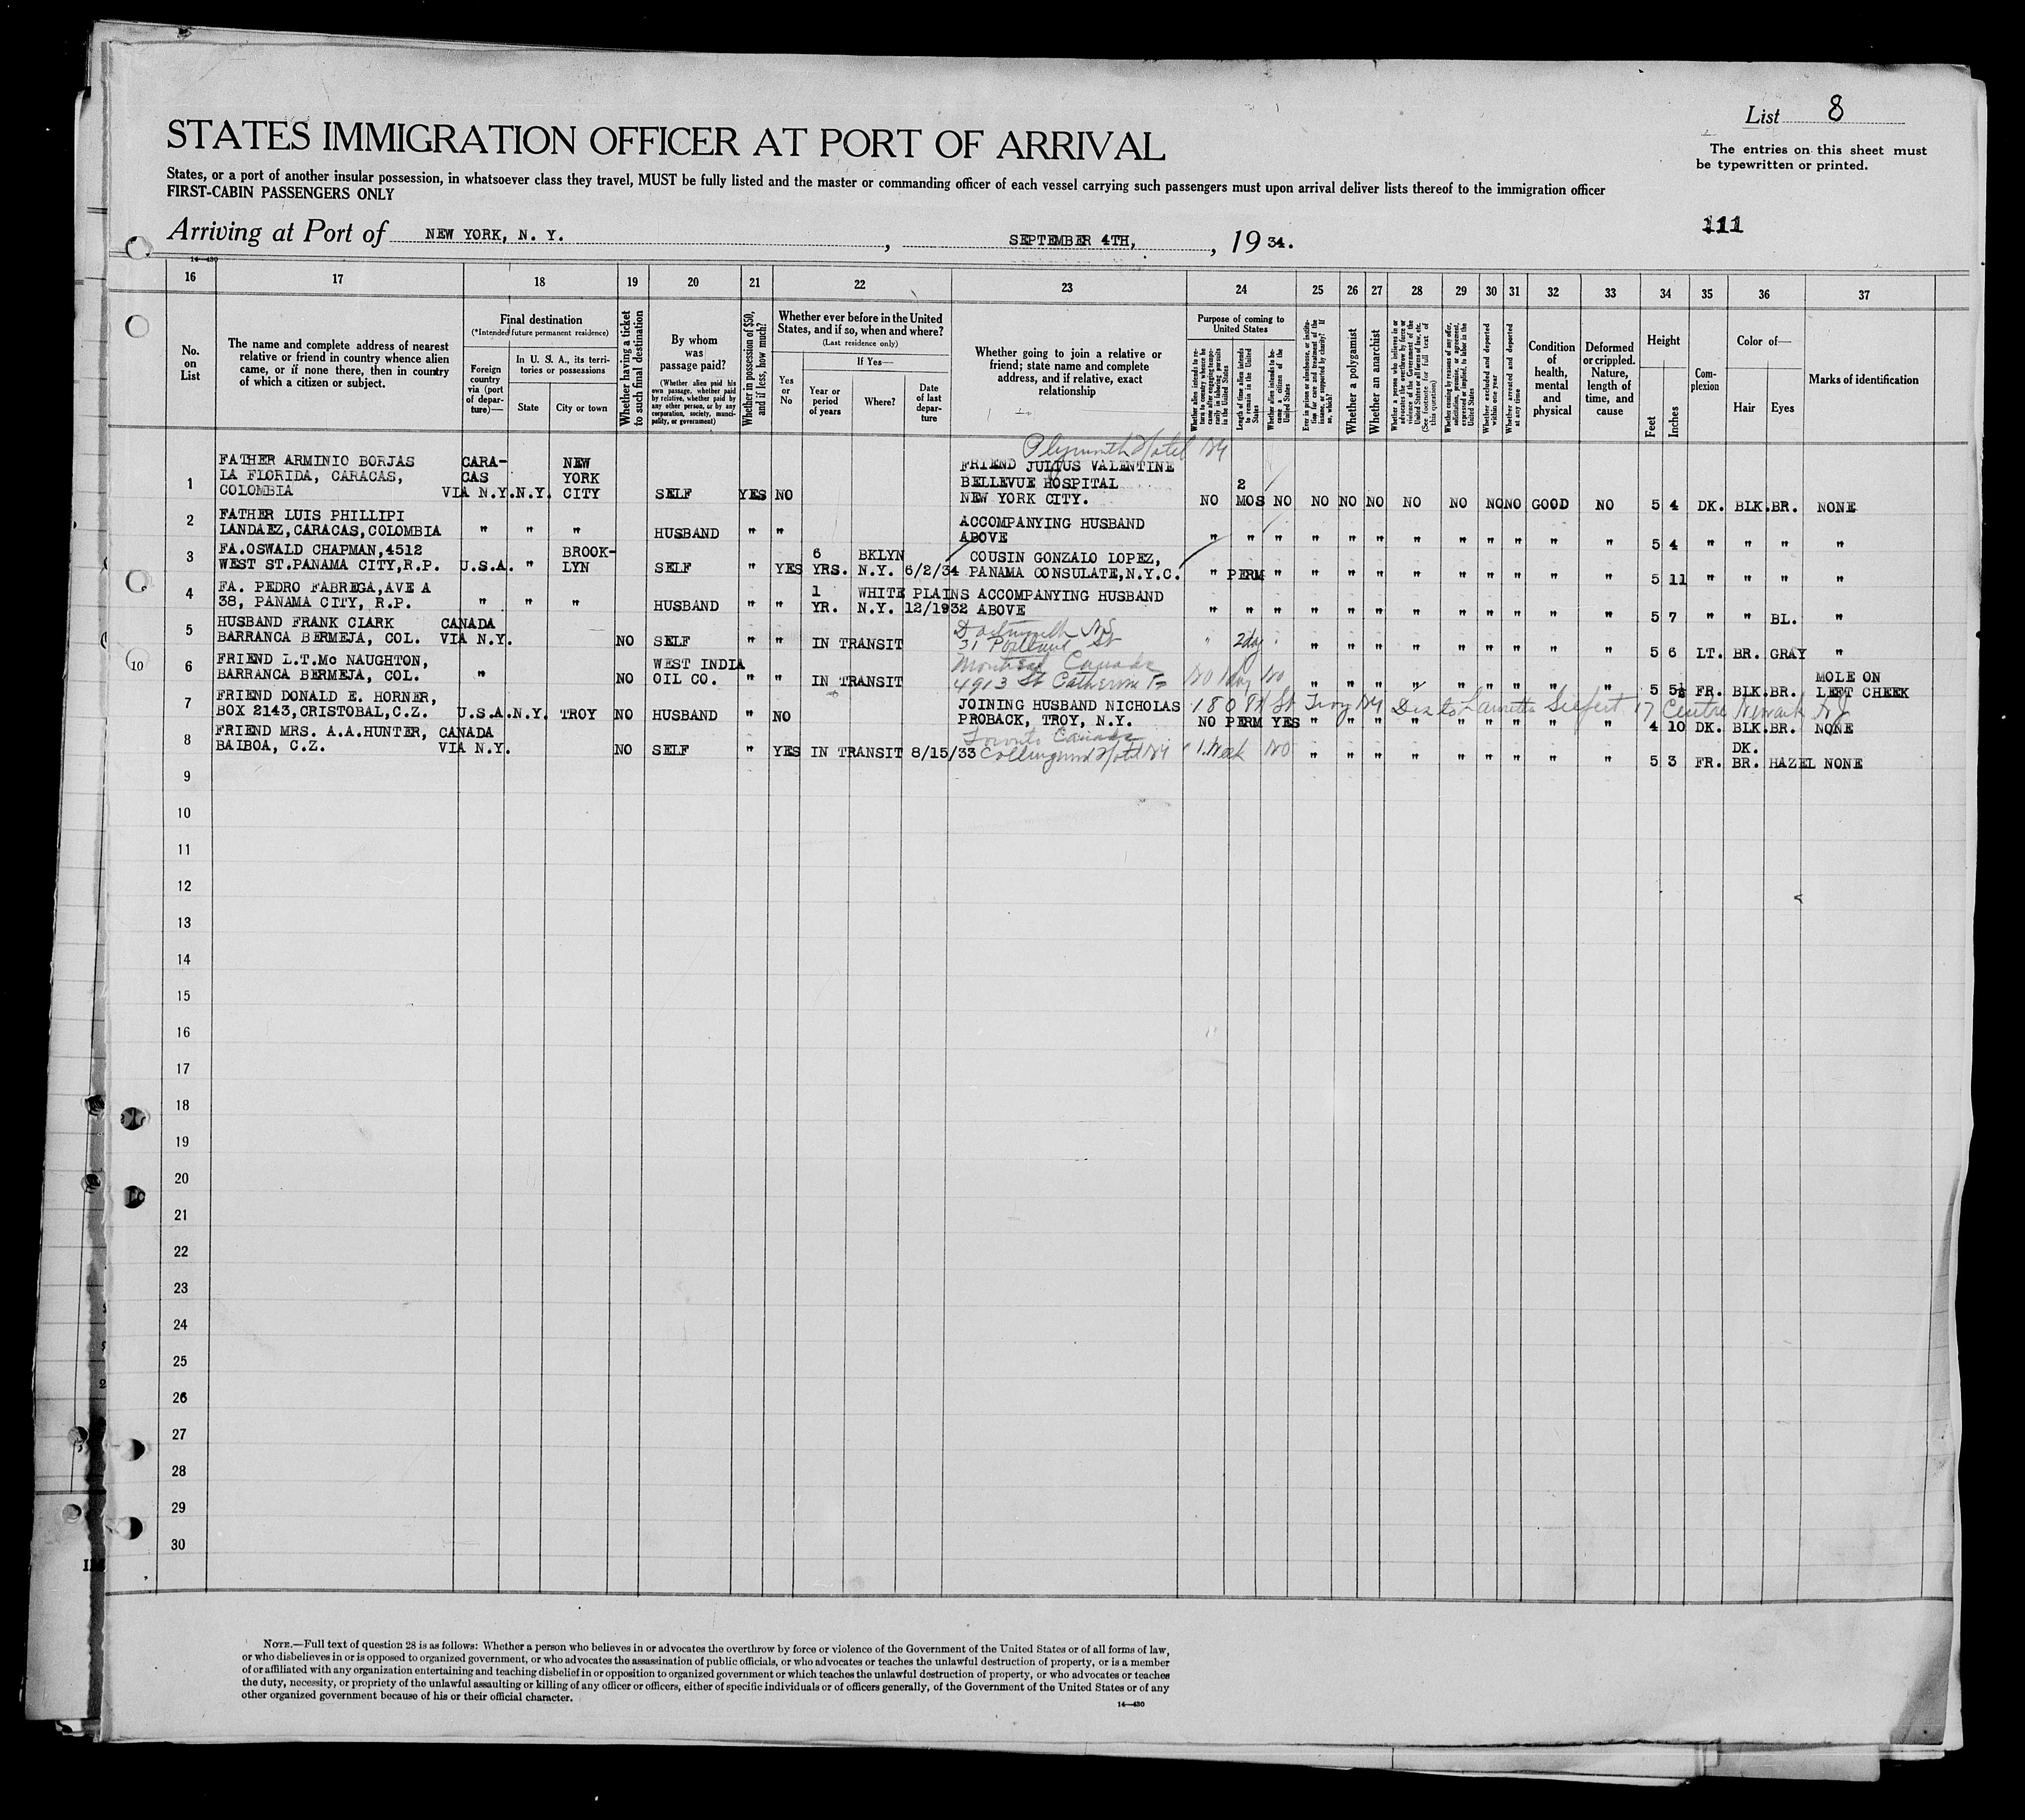 List 8
STATES IMMIGRATION OFFICER AT PORT OF ARRIVAL
The entries on this sheet must
be typewritten or printed.
States, or a port of another insular possession, in whatsoever class they travel, MUST be fully listed and the master or commanding officer of each vessel carrying such passengers must upon arrival deliver lists thereof to the immigration officer
FIRST-CABIN PASSENGERS ONLY
111
Arriving at Port of NEW YORK, N. Y., SEPTEMBER 4TH, , 19 34.
14—430
16 17 18 19 20 21 22 23 24 25 26 27 28 29 30 31 32 33 34 35 36 37
No.
on
List
The name and complete address of nearest
relative or friend in country whence alien
came, or if none there, then in country
of which a citizen or subject.
Final destination
(*Intended future permanent residence)
Foreign
country
via (port
of depar-
ture)—
In U. S. A., its terri-
tories or possessions
State
City or town
Whether having a ticket
to such final destination
By whom
was
passage paid?
(Whether alien paid his
own passage, whether paid
by relative, whether paid by
any other person, or by any
corporation, society, munici-
pality, or government)
Whether in possession of $50,
and if less, how much?
Whether ever before in the United
States, and if so, when and where?
(Last residence only)
Yes
or
No
If Yes—
Year or
period
of years
Where?
Date
of last
depar-
ture
Whether going to join a relative or
friend; state name and complete
address, and if relative, exact
relationship
Purpose of coming to
United States
Whether alien intends to re-
turn to country whence he
came after engaging tempo-
rarily in laboring pursuits
in the United States
Length of time alien intends
to remain in the United
States
Whether alien intends to be-
come a citizen of the
United States
Ever in prison or almshouse, or institu-
tion for care and treatment of the
insane, or supported by charity? If
so, which?
Whether a polygamist
Whether an anarchist
Whether a person who believes in or
advocates the overthrow by force or
violence of the Government of the
United States or all forms of law, etc.
(See footnote for full text of
this question)
Whether coming by reasons of any offer,
solicitation, promise, or agreement,
expressed or implied, to labor in the
United States
Whether excluded and deported
within one year
Whether arrested and deported
at any time
Condition
of
health,
mental
and
physical
Deformed
or crippled.
Nature,
length of
time, and
cause
Height
Feet
Inches
Com-
plexion
Color of—
Hair
Eyes
Marks of identification
Plymouth Hotel NY
1 FATHER ARMINIO BORJAS CARA- NEW FRIEND JULIUS VALENTINE
LA FLORIDA, CARACAS, CAS YORK BELLEVUE HOSPITAL 2
COLOMBIA VIA N.Y. N.Y. CITY SELF YES NO NEW YORK CITY. NO MOS NO NO NO NO NO NO NO NO GOOD NO 5 4 DK. BLK. BR. NONE
2 FATHER LUIS PHILLIPI ACCOMPANYING HUSBAND
LANDAEZ, CARACAS, COLOMBIA " " " HUSBAND " " ABOVE " " " " " " " " " " " " 5 4 " " " "
3 FA. OSWALD CHAPMAN, 4512 BROOK- 6 BKLYN COUSIN GONZALO LOPEZ,
WEST ST. PANAMA CITY, R.P. U.S.A. " LYN SELF " YES YRS. N.Y. 6/2/34 PANAMA CONSULATE, N.Y.C. " PERM " " " " " " " " " " 5 11 " " " "
4 FA. PEDRO FABREGA, AVE A 1 WHITE PLAINS ACCOMPANYING HUSBAND
38, PANAMA CITY, R.P. " " " HUSBAND " " YR. N.Y. 12/1932 ABOVE " " " " " " " " " " " " 5 7 " " BL. "
5 HUSBAND FRANK CLARK CANADA Dartmouth NS
BARRANCA BERMEJA, COL. VIA N.Y. NO SELF " " IN TRANSIT 31 Portland St " 2 day " " " " " " " " " " 5 6 LT. BR. GRAY "
6 FRIEND L.T. Mc NAUGHTON, WEST INDIA Montreal Canada MOLE ON
BARRANCA BERMEJA, COL. " NO OIL CO. " " IN TRANSIT 4913 St Catherine No 1 day No " " " " " " " " " 5 5½ FR. BLK. BR. LEFT CHEEK
7 FRIEND DONALD E. HORNER, JOINING HUSBAND NICHOLAS 180 St Troy NY Siefert 17 Centre Newark NJ
BOX 2143, CRISTOBAL, C.Z. U.S.A. N.Y. TROY NO HUSBAND " NO PROBACK, TROY, N.Y. NO PERM YES " " " " " " " " " 4 10 DK. BLK. BR. NONE
8 FRIEND MRS. A.A. HUNTER, CANADA Toronto Canada DK.
BALBOA, C.Z. VIA N.Y. NO SELF " YES IN TRANSIT 8/15/33 Collingwood Hotel NY " 1 Week NO " " " " " " " " " 5 3 FR. BR. HAZEL NONE
9
10
11
12
13
14
15
16
17
18
19
20
21
22
23
24
25
26
27
28
29
30
10
NOTE.—Full text of question 28 is as follows: Whether a person who believes in or advocates the overthrow by force or violence of the Government of the United States or of all forms of law,
or who disbelieves in or is opposed to organized government, or who advocates the assassination of public officials, or who advocates or teaches the unlawful destruction of property, or is a member
of or affiliated with any organization entertaining and teaching disbelief in or opposition to organized government or which teaches the unlawful destruction of property, or who advocates or teaches
the duty, necessity, or propriety of the unlawful assaulting or killing of any officer or officers, either of specific individuals or of officers generally, of the Government of the United States or of any
other organized government because of his or their official character.
14—430